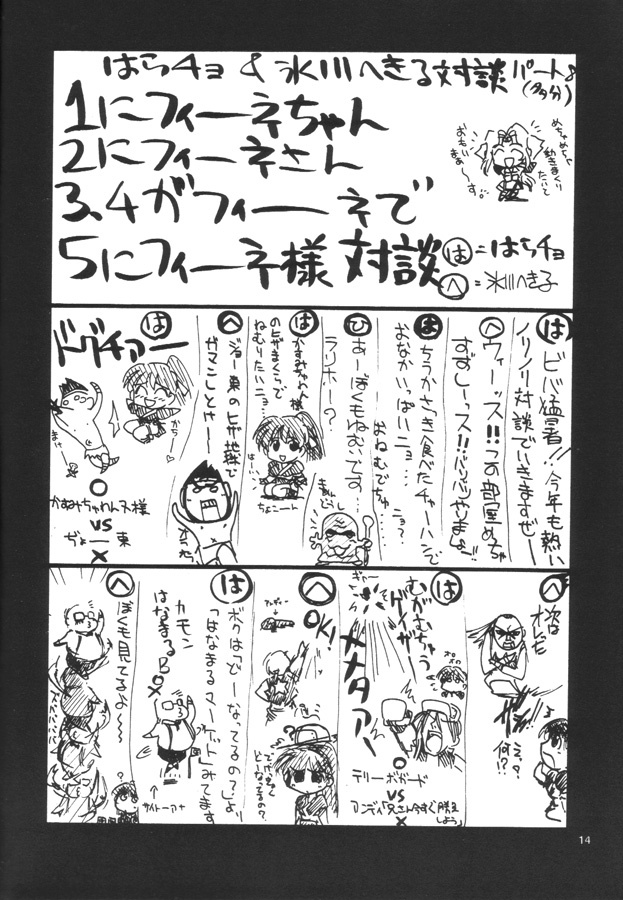 はらチョ & 氷川へきる対談パート8
(多分)
1にフィーネちゃん
2にフィーネさん
3、4がフィーネで
5にフィーネ様 対談
めちゃめちゃ
動きまくり
たいで
おもい
まぁ〜す。
は=はらチョ
へ=氷川へき子
は ビバ猛暑!!今年も熱い
ノリノリ対談でいきますぜー
へ ウィーッス!!この部屋めっちゃ
すずしーッス!!バリバリやりまっよ。
は ちうかさっき食べたチャーハンで
おなかいっぱいニョ…
おねむでちゅ…ニョ?
ひ あーぼくもねむいです…
ラリホー?
は かすみちゃわん様
のヒザまくらで
ねむりたいニョ…
はーい。
ちょこーート
へ ジョー東のヒザ地獄で
ガマンしとけや――
は ドグチァ――
かち♡
まけ
○
かすみちゃわん様
VS
ぢょー東
×
へ 次は
オレだ
えっ?
何!?
は むがむちゅう
ゲイザー
ギャー
メメタァ
○
テリーボガード
VS
アンディ「兄さん今すぐ勝負しよう」
×
へ OK!
で、けっきょく
どーなってるの?
は ボクは「どーなってるの?」より
「はなまるマーケット」みてます
カモン
はなまるB
○
×
サイトーアナ
へ ぼくも見てるよ〜〜
14